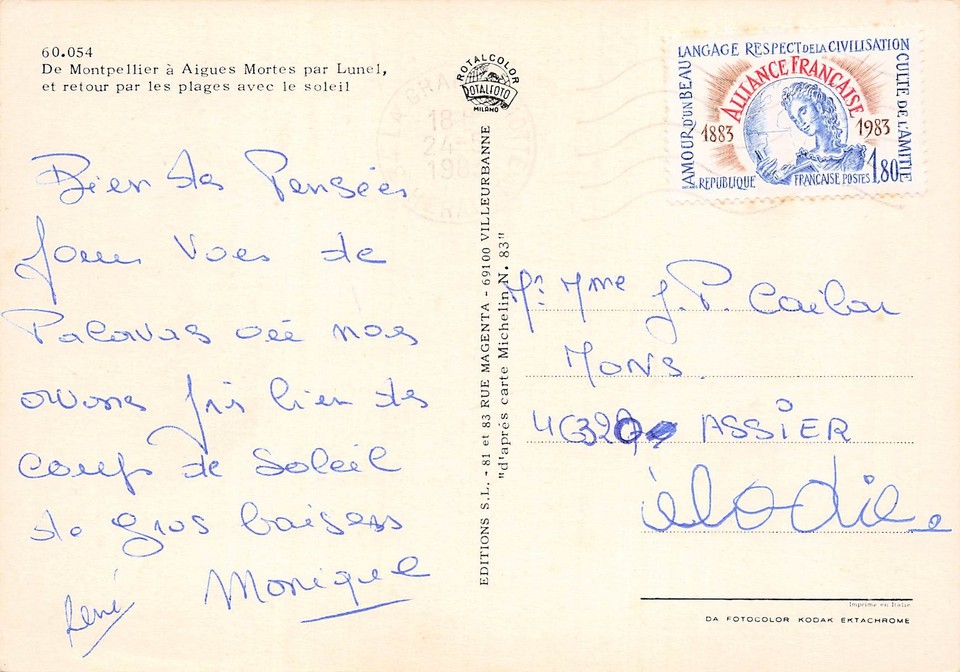 60.054
De Montpellier à Aigues Mortes par Lunel,
et retour par les plages avec le soleil
Bien des Pensées
pour vous de
Palavas où nos
avons pris bien des
coups de soleil
de gros baisers
Monique
René
ROTALCOLOR
ROTALFOTO
MILANO
EDITIONS S.L. - 81 et 83 RUE MAGENTA - 69100 VILLEURBANNE
"d'aprés carte Michelin N. 83"
LA GRANDE MOTTE
18
24-
198
AMOUR D'UN BEAU LANGAGE RESPECT DE LA CIVILISATION CULTE DE L'AMITIÉ
ALLIANCE FRANÇAISE
1883
1983
1,80
RÉPUBLIQUE FRANÇAISE POSTES
Mr Mme J.P. Cailar
MONS.
46320 ASSIER
élodie
Imprimé en Italie
DA FOTOCOLOR KODAK EKTACHROME